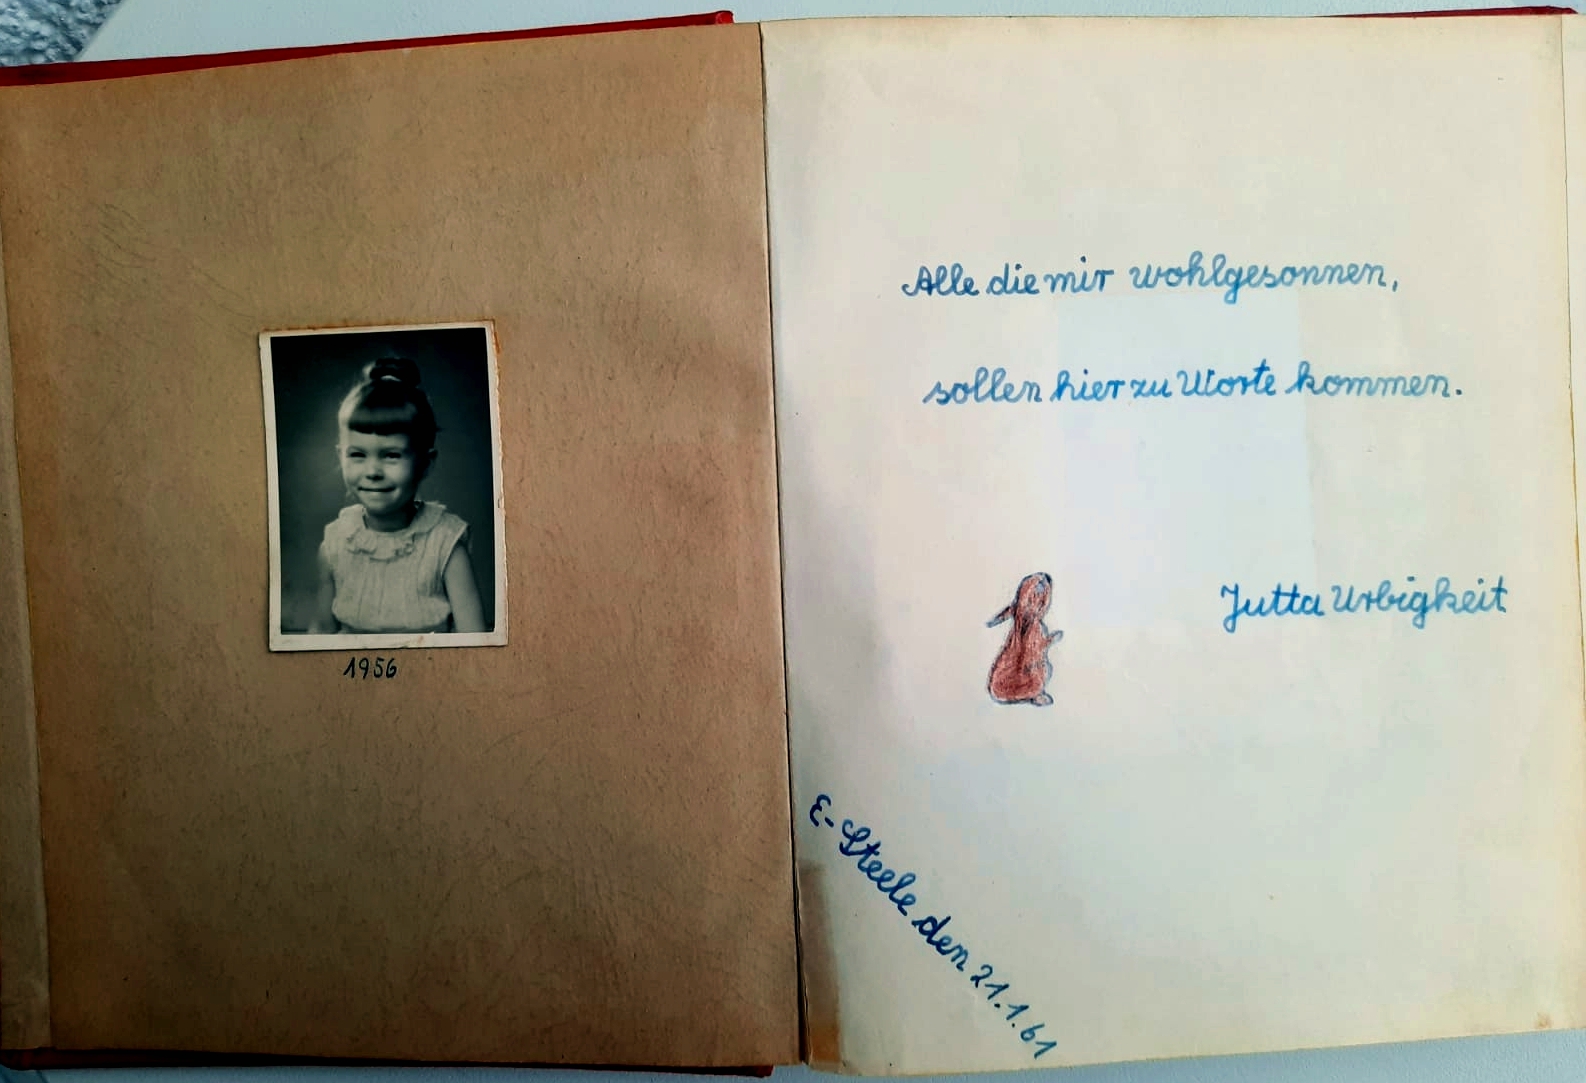 1956
Alle die mir wohlgesonnen,
sollen hier zu Worte kommen.
Jutta Urbigkeit
E-Steele den 21.1.61